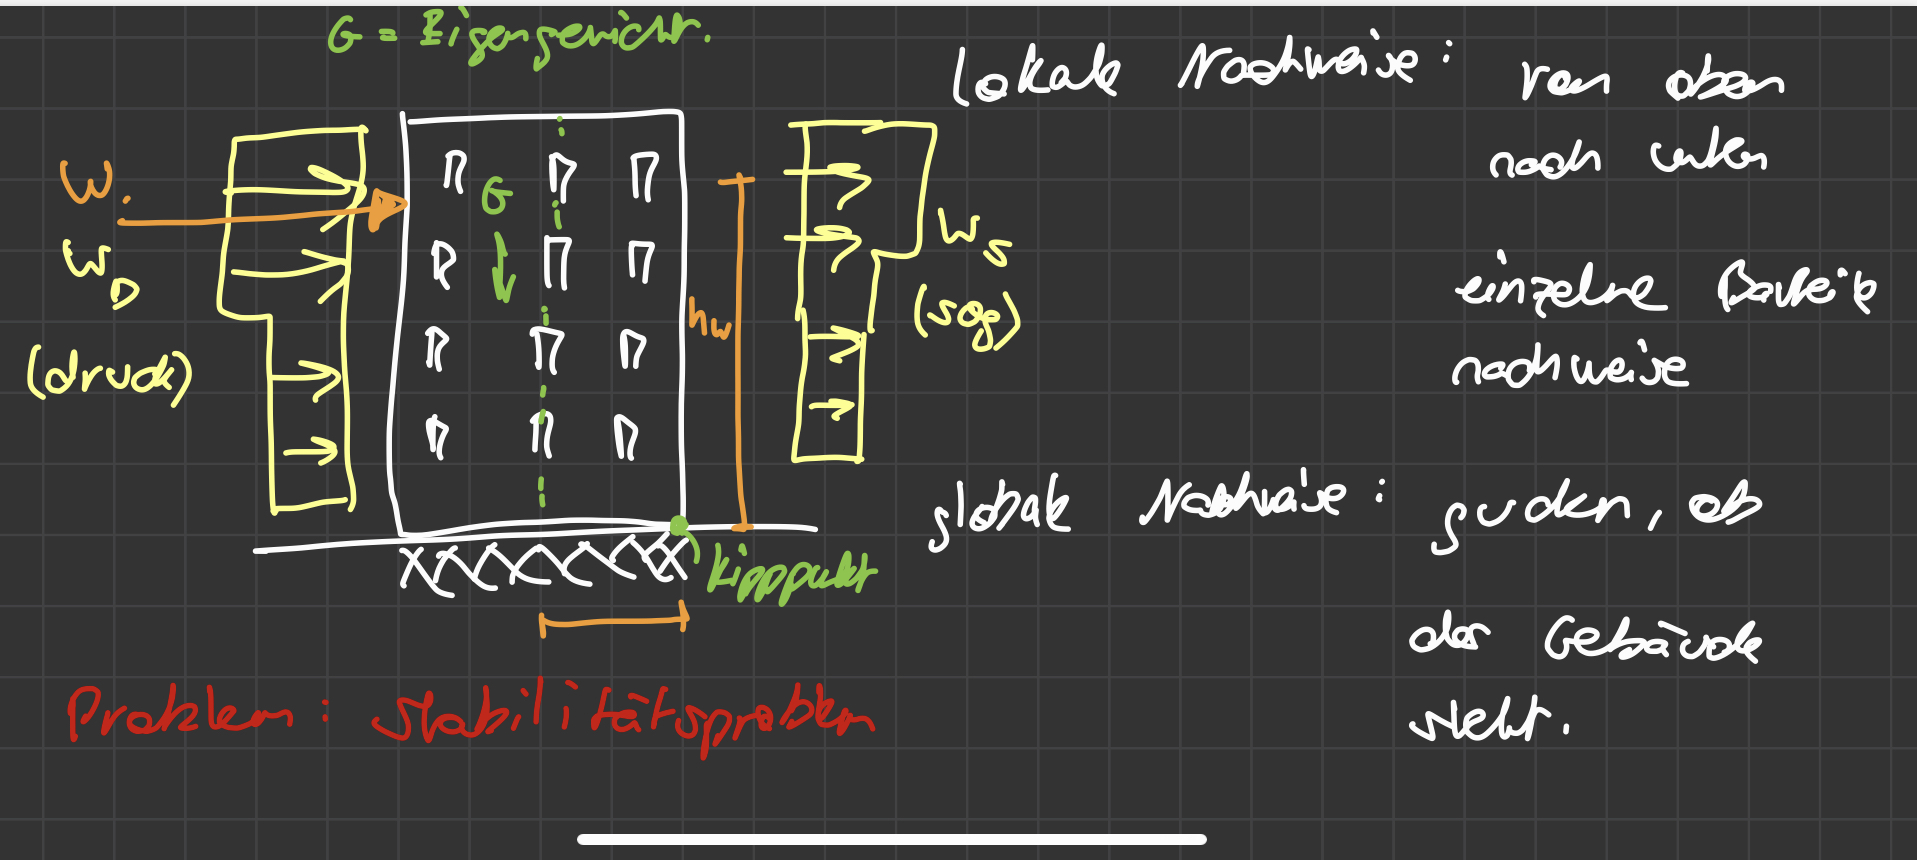 G = Eigengewicht.
W.
W_D
(druck)
G
h_w
W_s
(sog)
Kipppunkt
Problem: Stabilitätsproblem
lokale Nachweise: von oben
nach unten
einzelne Bauteile
nachweise
globale Nachweise: gucken, ob
das Gebäude
steht.